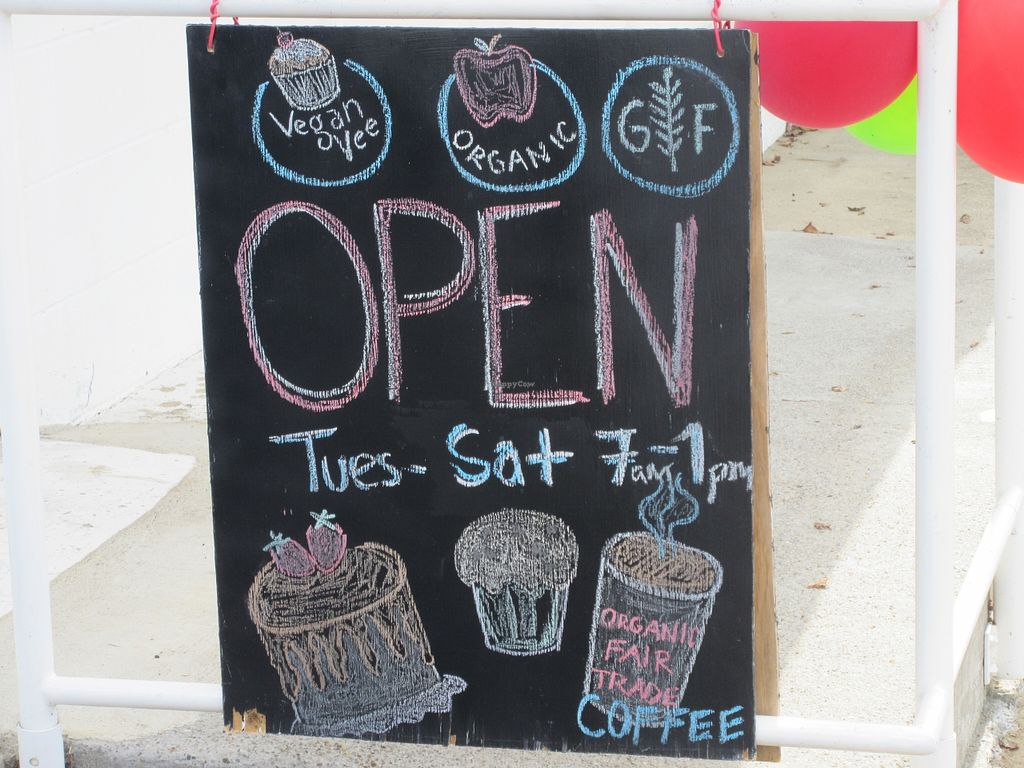 Vegan
ovee
ORGANIC
GF
OPEN
Tues- Sat 7am-1pm
ORGANIC
FAIR
TRADE
COFFEE
HappyCow